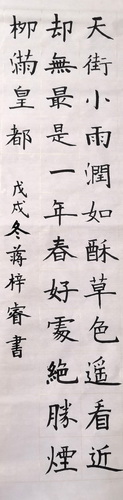 天街小雨潤如酥草色遥看近
却無最是一年春好處絕勝煙
柳滿皇都
戊戌冬蔣梓睿書